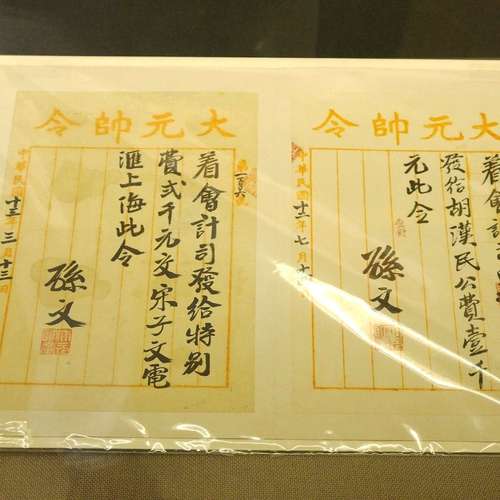 大元帥令
着會計司發給特別
費弍千元交宋子文電
滙上海此令
孫文
中華民國十三年三月十三日
大元帥令
着會計
發給胡漢民公費壹千
元此令
孫文
中華民國十二年七月十